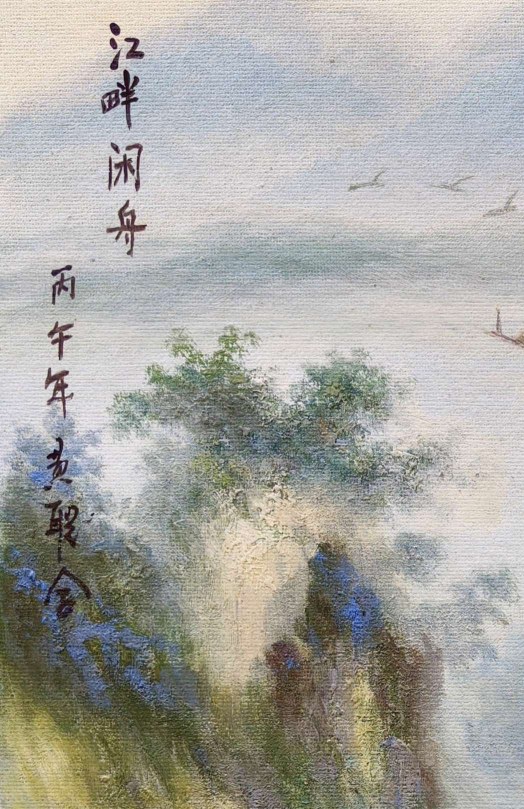 江畔闲舟
丙午年黄聪合